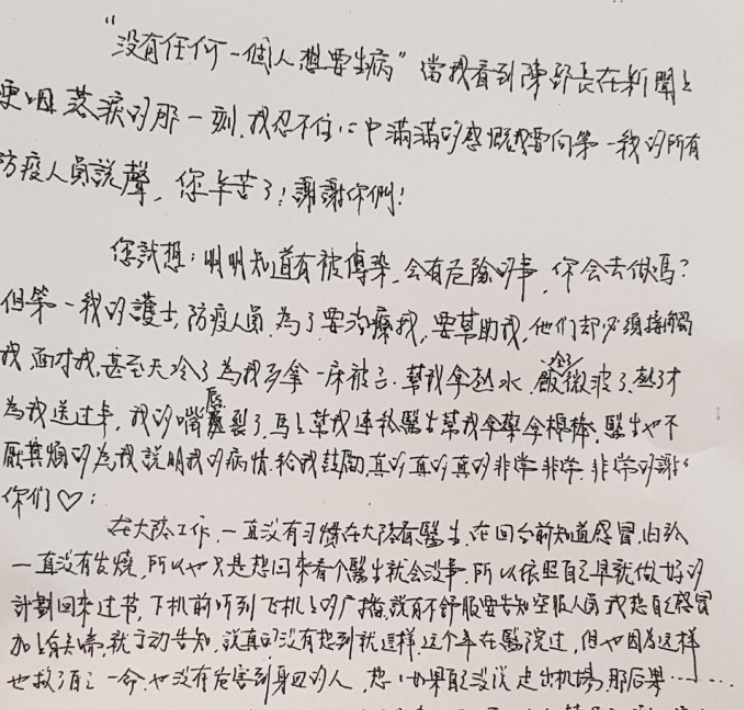 "没有任何一個人想要生病"當我看到陳部長在新聞上
哽咽落淚的那一刻,我忍不住心中滿滿的感慨我要向第一線的所有
防疫人員說聲,您辛苦了!謝謝你們!
您試想:明明知道有被傳染,会有危險的事,你会去做嗎?
但第一線的護士,防疫人員,為了要治療我,要幫助我,他们却必須接觸
我面对我,甚至天冷了為我多拿一床被子.幫我拿熱水,飯冷了微波了,熱了才
為我送过來,我的嘴唇裂了,馬上幫我連絡醫生幫我拿藥拿棉棒,醫生也不
厭其煩的為我說明我的病情.給我鼓勵,真的真的真的非常非常.非常的謝谢
你们♡:
在大陸工作,一直没有习慣在大陸看醫生,在回台前知道感冒,但
一直没有发燒,所以也只是想回來看个醫生就会没事,所以依照自己早就做好的
計劃回來过节,下机前听到飞机上的广播,說有不舒服要告知空服人員我想自己感冒
加上有去,就主动告知,說真的没有想到就這样,这个年在醫院过,但也因為这样
也救了自己一命,也没有危害到身边的人,想想如果自己没說走出机場,那后果……